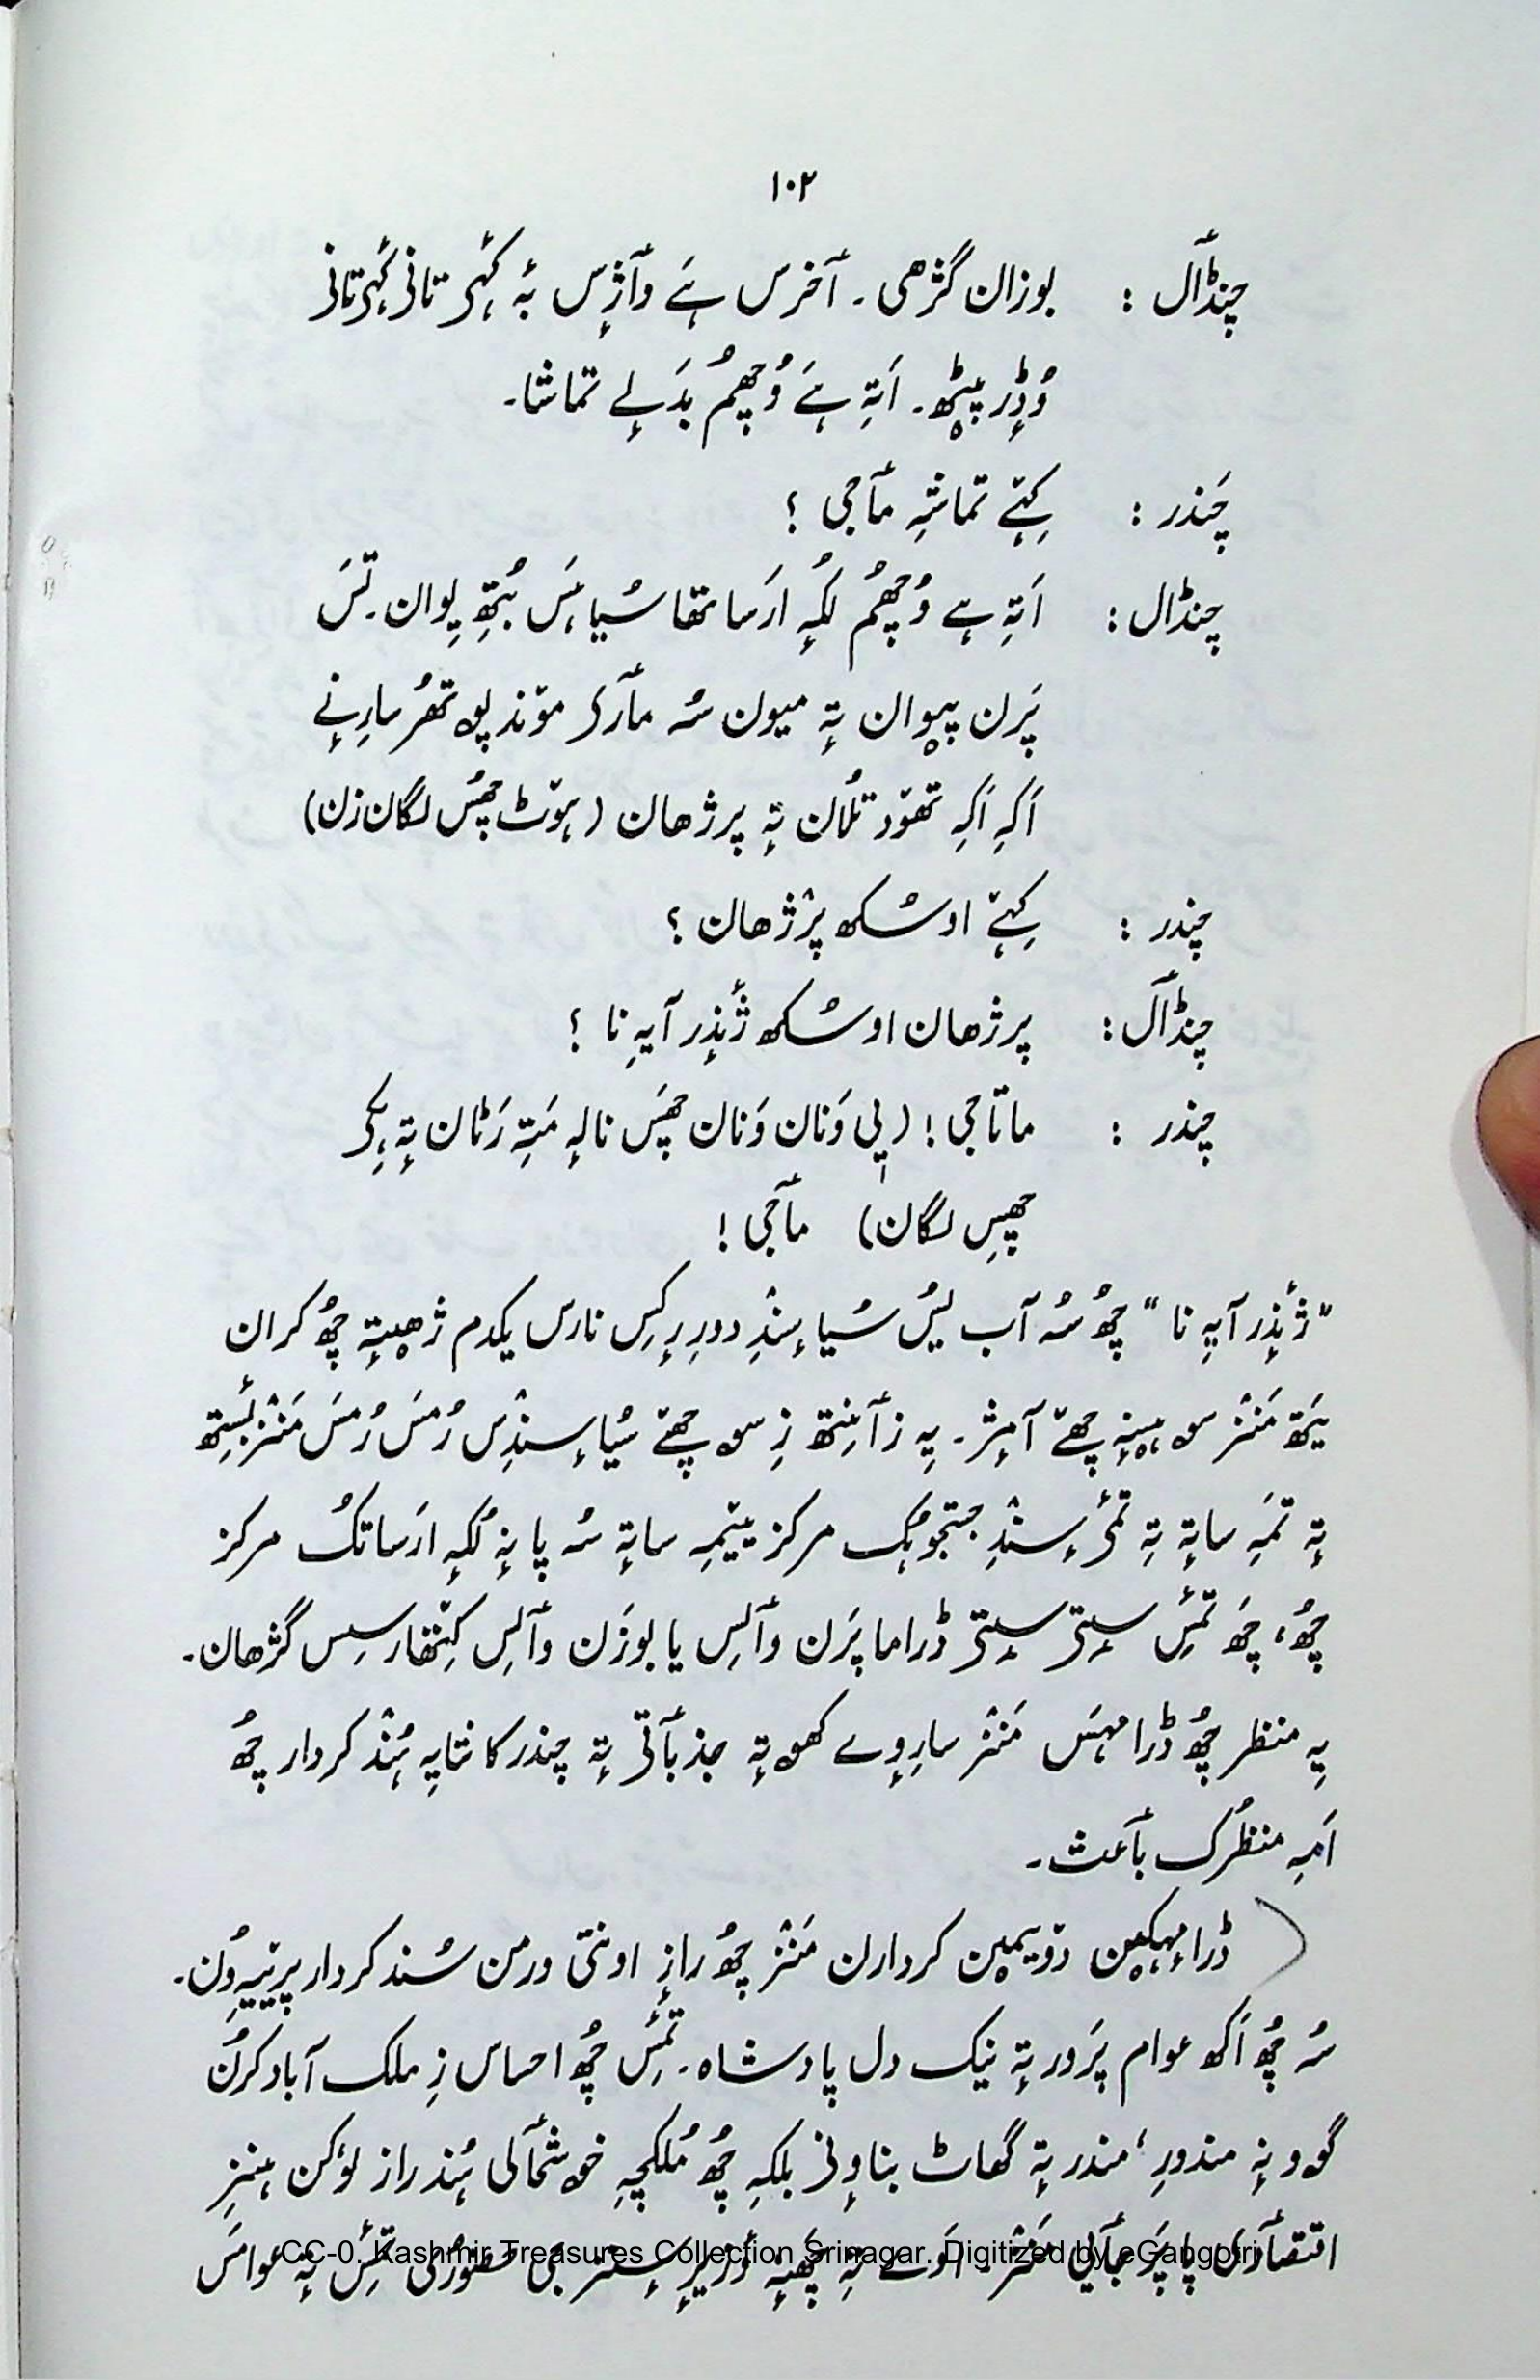 ۱۰۲
چنڈٲل : بوزان گژھی ۔ ٲخرس ہے وٲژس بہٕ کُہی تانی کُہی تانی
وُڈرِ پیٹھ۔ اَتہِ ہے وُچھُم بدَلے تماشا۔
چَندر : کِہتے تماشہِ مٲجی ؟
چنڈال : اَتہِ ہے وُچھُم لُکہِ ارَساتھا سُیاہَس بُتھِ یِوان۔ تَس
پَرن پیوان تہٕ میون سُہ مٲرک موند پوٚتھُر سارِنے
اَکہِ اَکہِ تھوٚد تُلان تہٕ پرژھان (ہوٚٹ چھُس لگان زن)
چندر : کِہتے اوسُکھ پرٛژھان ؟
چنڈٲل : پرژھان اوسُکھ ژٔندِر آیہِ نا ؟
چندر : ماتاجی ! (یی وَنان وَنان چھَس نالہِ مَتہِ رَٹان تہٕ ہِکی
چھیس لگان) مٲجی !
”ژٔندِر آیہِ نا“ چھُ سُہ آب یُس سُیاہِ سٕندِ دورِرکِس نارس یکدم ژھیتہٕ چھُ کران
یَتھ مَنٛز سوہ ہیٚنہِ چھےٚ آمٕژ۔ یہِ زٲنِتھ زِ سوہ چھےٚ سُیاہِ سٕندِس رُمس رُمس مَنٛز بٔستِھ
تہٕ تمہِ ساتہٕ تہِ تٔمی سٕندِ جستجوہُک مرکز ییٚمہِ ساتہٕ سُہ پانہٕ لُکہِ ارَساتُک مرکز
چھُ، چھَ تٔمِس سۭتی سۭتی ڈراما پَرن وٲلِس یا بوزَن وٲلِس کیتھارسِس گژھان۔
یہِ منظر چھُ ڈراماہَس مَنٛز سارِوے کھوتہٕ جذبٲتی تہٕ چندرکانتایہِ ہُنٛد کردار چھُ
اَمہِ منظُرک بٲعث۔
ڈراماہکیٚن دوٚیِمیٚن کردارن مَنٛز چھُ رازٕ اونتی ورمن سُند کردار پرٛییہِ وُن۔
سُہ چھُ اَکھ عوام پرَور تہٕ نیک دل پادشاہ۔ تٔمِس چھُ احساس زِ ملک آباد کرُن
گوو نہٕ مندورِ، مندر تہٕ گھاٹ بناونی بلکہِ چھُ مُلکچہِ خوشحٲلی ہُند راز لوٗکن ہنزِ
اقتصٲدی پاپرَجٲیی مَنٛز۔ اَوے تہِ چھَنہٕ وَزیرِ سٕنز جی حضوٗری تٔمِس تہٕ عوامَس
CC-0. Kashmir Treasures Collection Srinagar. Digitized by eGangotri